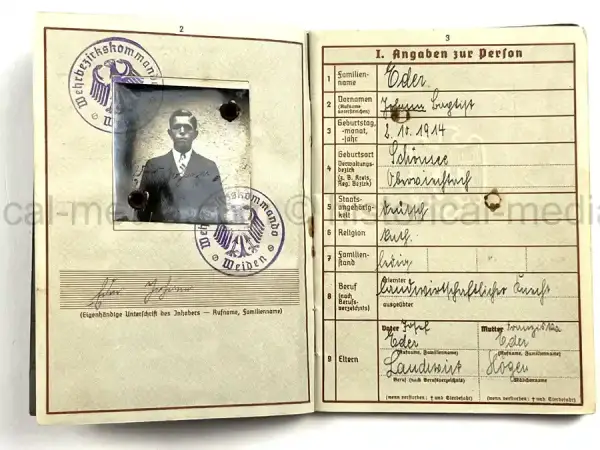 2
Wehrbezirkskommando
Weiden
Wehrbezirkskommando
Weiden
(Eigenhändige Unterschrift des Inhabers — Rufname, Familienname)
3
I. Angaben zur Person
1 Familien-
name
Eder
2 Vornamen
(Rufname
unterstreichen)
Johann Baptist
3 Geburtstag,
-monat,
-jahr
2.10.1914
4 Geburtsort
Verwaltungs-
bezirk
(z. B. Kreis,
Reg.-Bezirk)
Schönsee
Oberviechtach
5 Staats-
angehörig-
keit
deutsch
6 Religion
kath.
7 Familien-
stand
ledig
8 Beruf
(nach
Berufs-
verzeichnis)
erlernter
landwirtschaftlicher Knecht
ausgeübter
9 Eltern
Vater Josef
Eder
(Rufname, Familienname)
Landwirt
Beruf (nach Berufsverzeichnis)
(wenn verstorben: † und Sterbejahr)
Mutter Franziska
Eder
(Rufname, Familienname)
Mädchenname
(wenn verstorben: † und Sterbejahr)